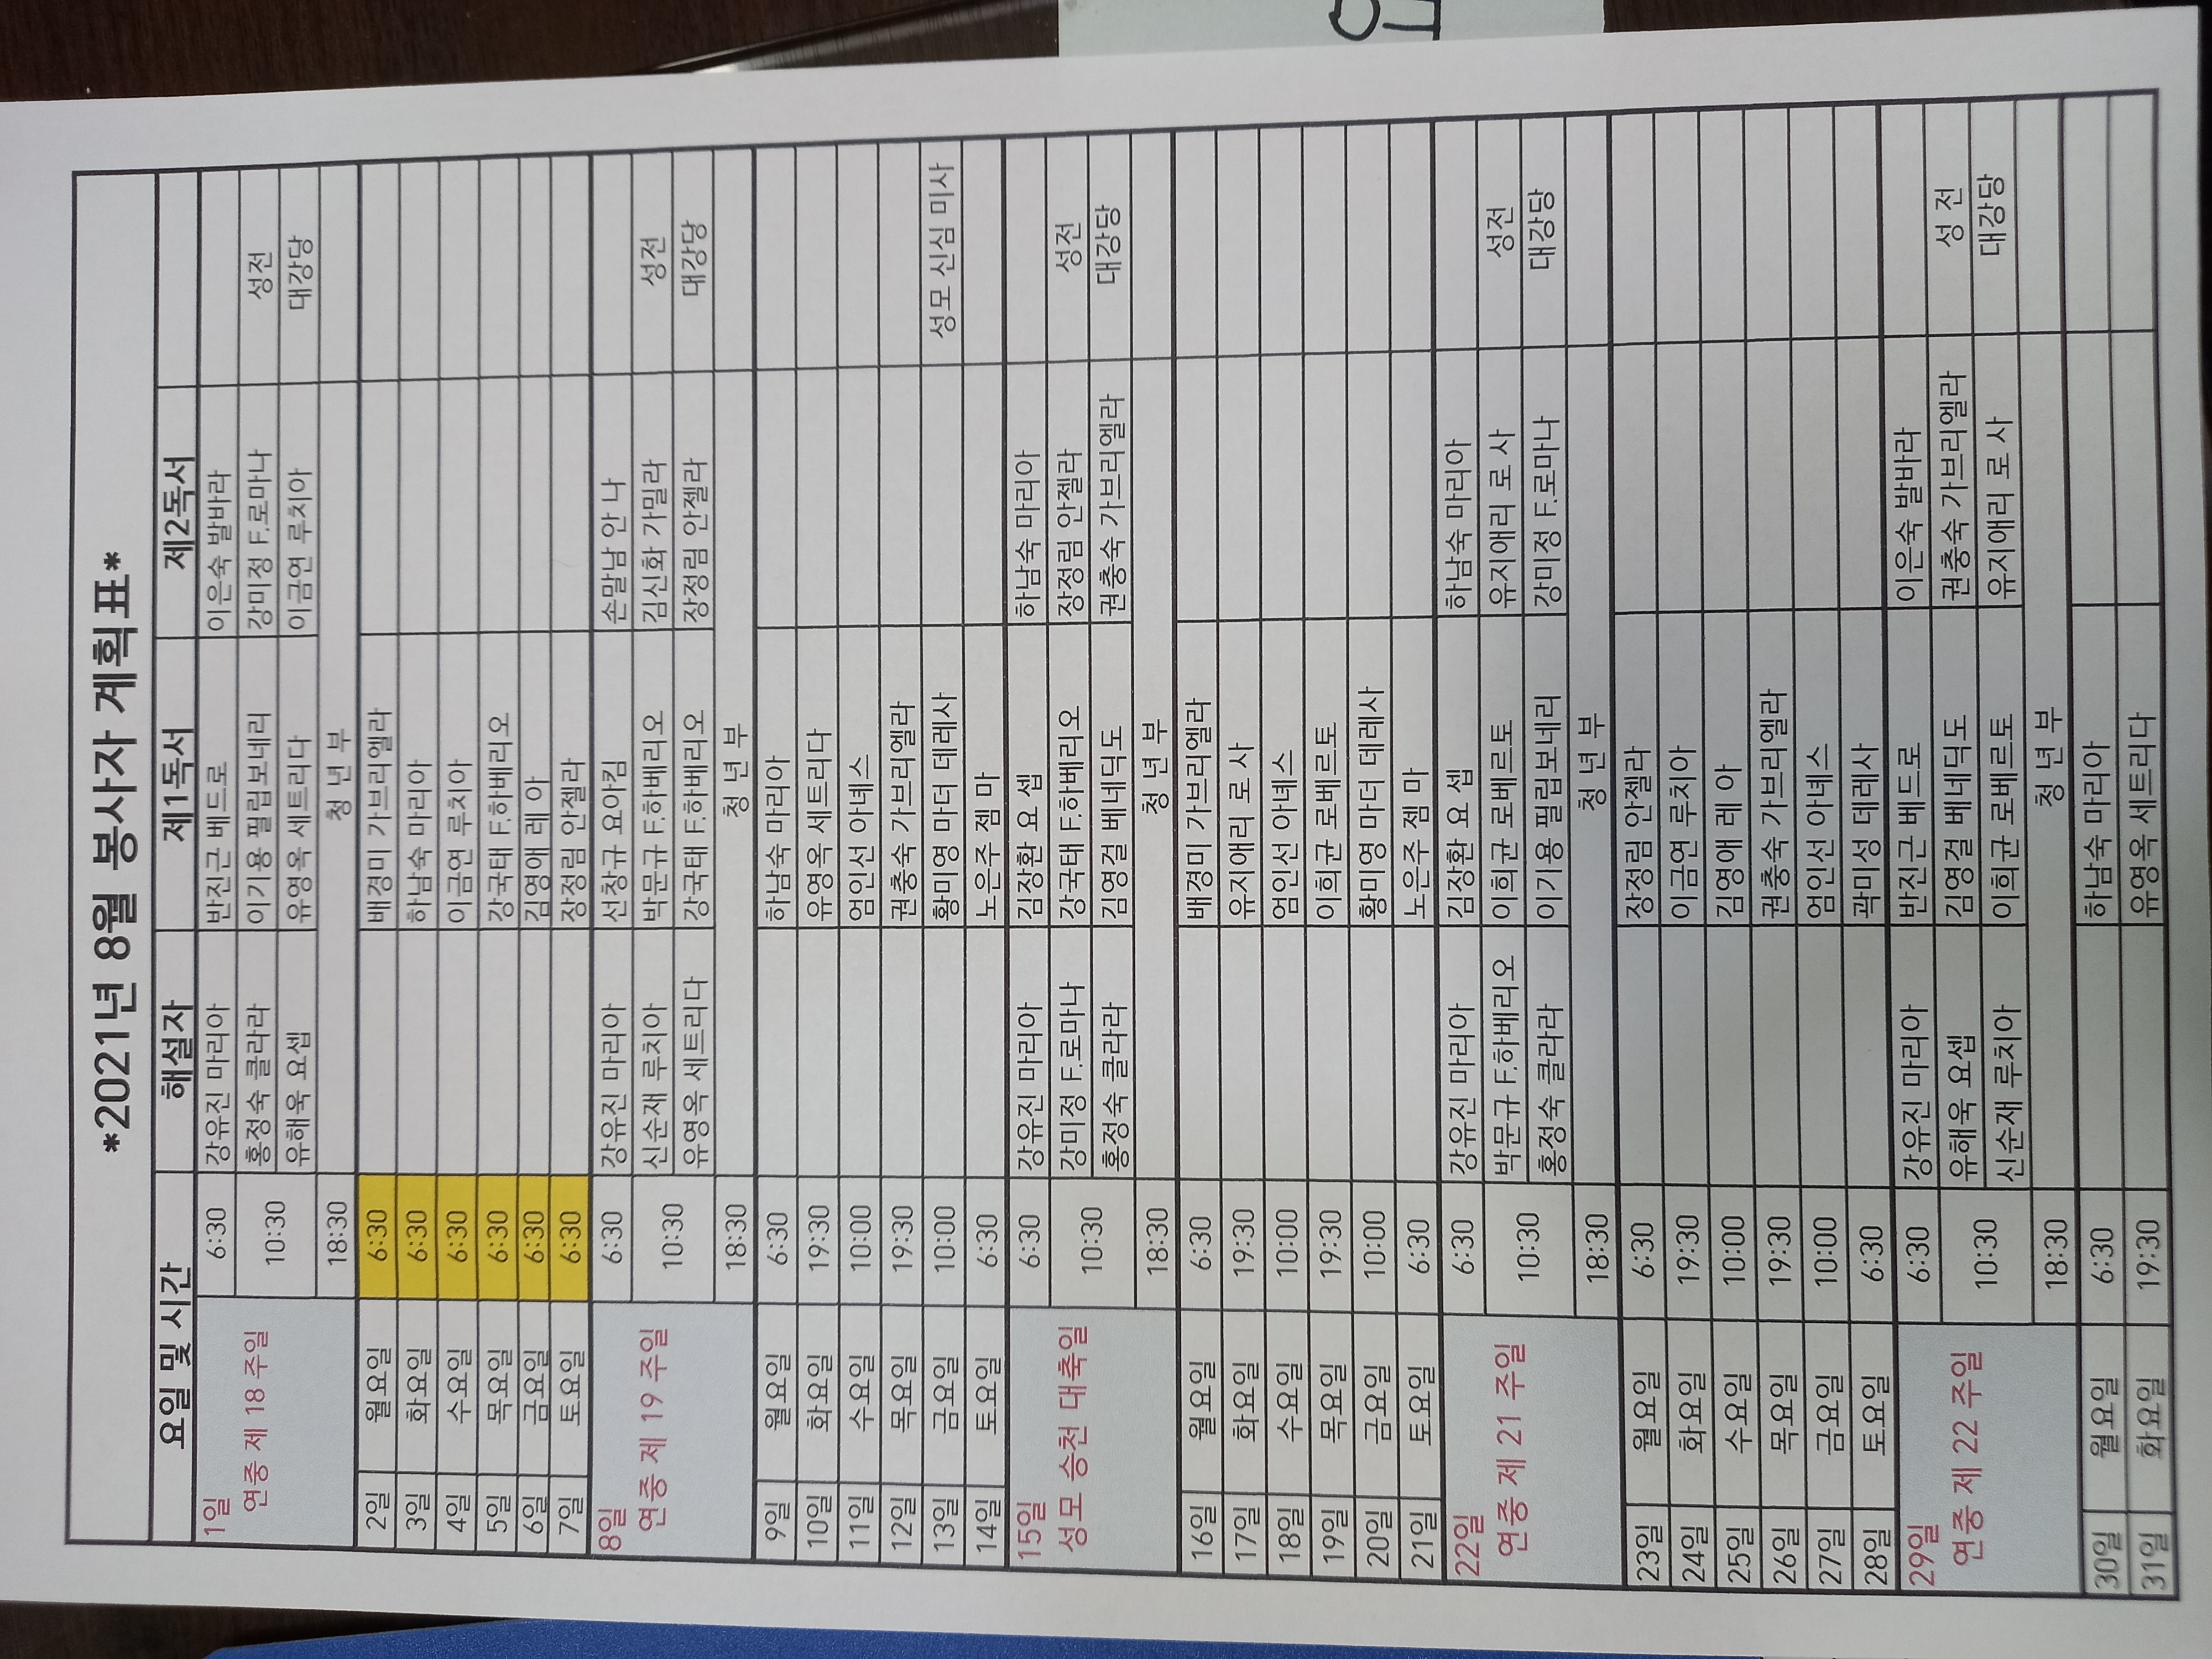 *2021년 8월 봉사자 계획표*
요일 및 시간 해설자 제1독서 제2독서
1일 6:30 강유진 마리아 반진근 베드로 이은숙 발바라
연중 제 18 주일 10:30 홍정숙 클라라 이기용 필립보네리 강미정 F.로마나 성전
유해욱 요셉 유영옥 세트리다 이금연 루치아 대강당
18:30 청 년 부
2일 월요일 6:30 배경미 가브리엘라
3일 화요일 6:30 하남숙 마리아
4일 수요일 6:30 이금연 루치아
5일 목요일 6:30 강국태 F.하베리오
6일 금요일 6:30 김영애 레 아
7일 토요일 6:30 장정림 안젤라
8일 6:30 강유진 마리아 선창규 요아킴 손말남 안 나
연중 제 19 주일 10:30 신순재 루치아 박문규 F.하베리오 김신화 가밀라 성전
유영옥 세트리다 강국태 F.하베리오 장정림 안젤라 대강당
18:30 청 년 부
9일 월요일 6:30 하남숙 마리아
10일 화요일 19:30 유영옥 세트리다
11일 수요일 10:00 엄인선 아녜스
12일 목요일 19:30 권충숙 가브리엘라
13일 금요일 10:00 황미영 마더 데레사 성모 신심 미사
14일 토요일 6:30 노은주 젬 마
15일 6:30 강유진 마리아 김장환 요 셉 하남숙 마리아
성모 승천 대축일 10:30 강미정 F.로마나 강국태 F.하베리오 장정림 안젤라 성전
홍정숙 클라라 김영걸 베네딕도 권충숙 가브리엘라 대강당
18:30 청 년 부
16일 월요일 6:30 배경미 가브리엘라
17일 화요일 19:30 유지애리 로 사
18일 수요일 10:00 엄인선 아녜스
19일 목요일 19:30 이희균 로베르토
20일 금요일 10:00 황미영 마더 데레사
21일 토요일 6:30 노은주 젬 마
22일 6:30 강유진 마리아 김장환 요 셉 하남숙 마리아
연중 제 21 주일 10:30 박문규 F.하베리오 이희균 로베르토 유지애리 로 사 성전
홍정숙 클라라 이기용 필립보네리 강미정 F.로마나 대강당
18:30 청 년 부
23일 월요일 6:30 장정림 안젤라
24일 화요일 19:30 이금연 루치아
25일 수요일 10:00 김영애 레 아
26일 목요일 19:30 권충숙 가브리엘라
27일 금요일 10:00 엄인선 아녜스
28일 토요일 6:30 곽미성 데레사
29일 6:30 강유진 마리아 반진근 베드로 이은숙 발바라
연중 제 22 주일 10:30 유해욱 요셉 김영걸 베네딕도 권충숙 가브리엘라 성 전
신순재 루치아 이희균 로베르토 유지애리 로 사 대강당
18:30 청 년 부
30일 월요일 6:30 하남숙 마리아
31일 화요일 19:30 유영옥 세트리다